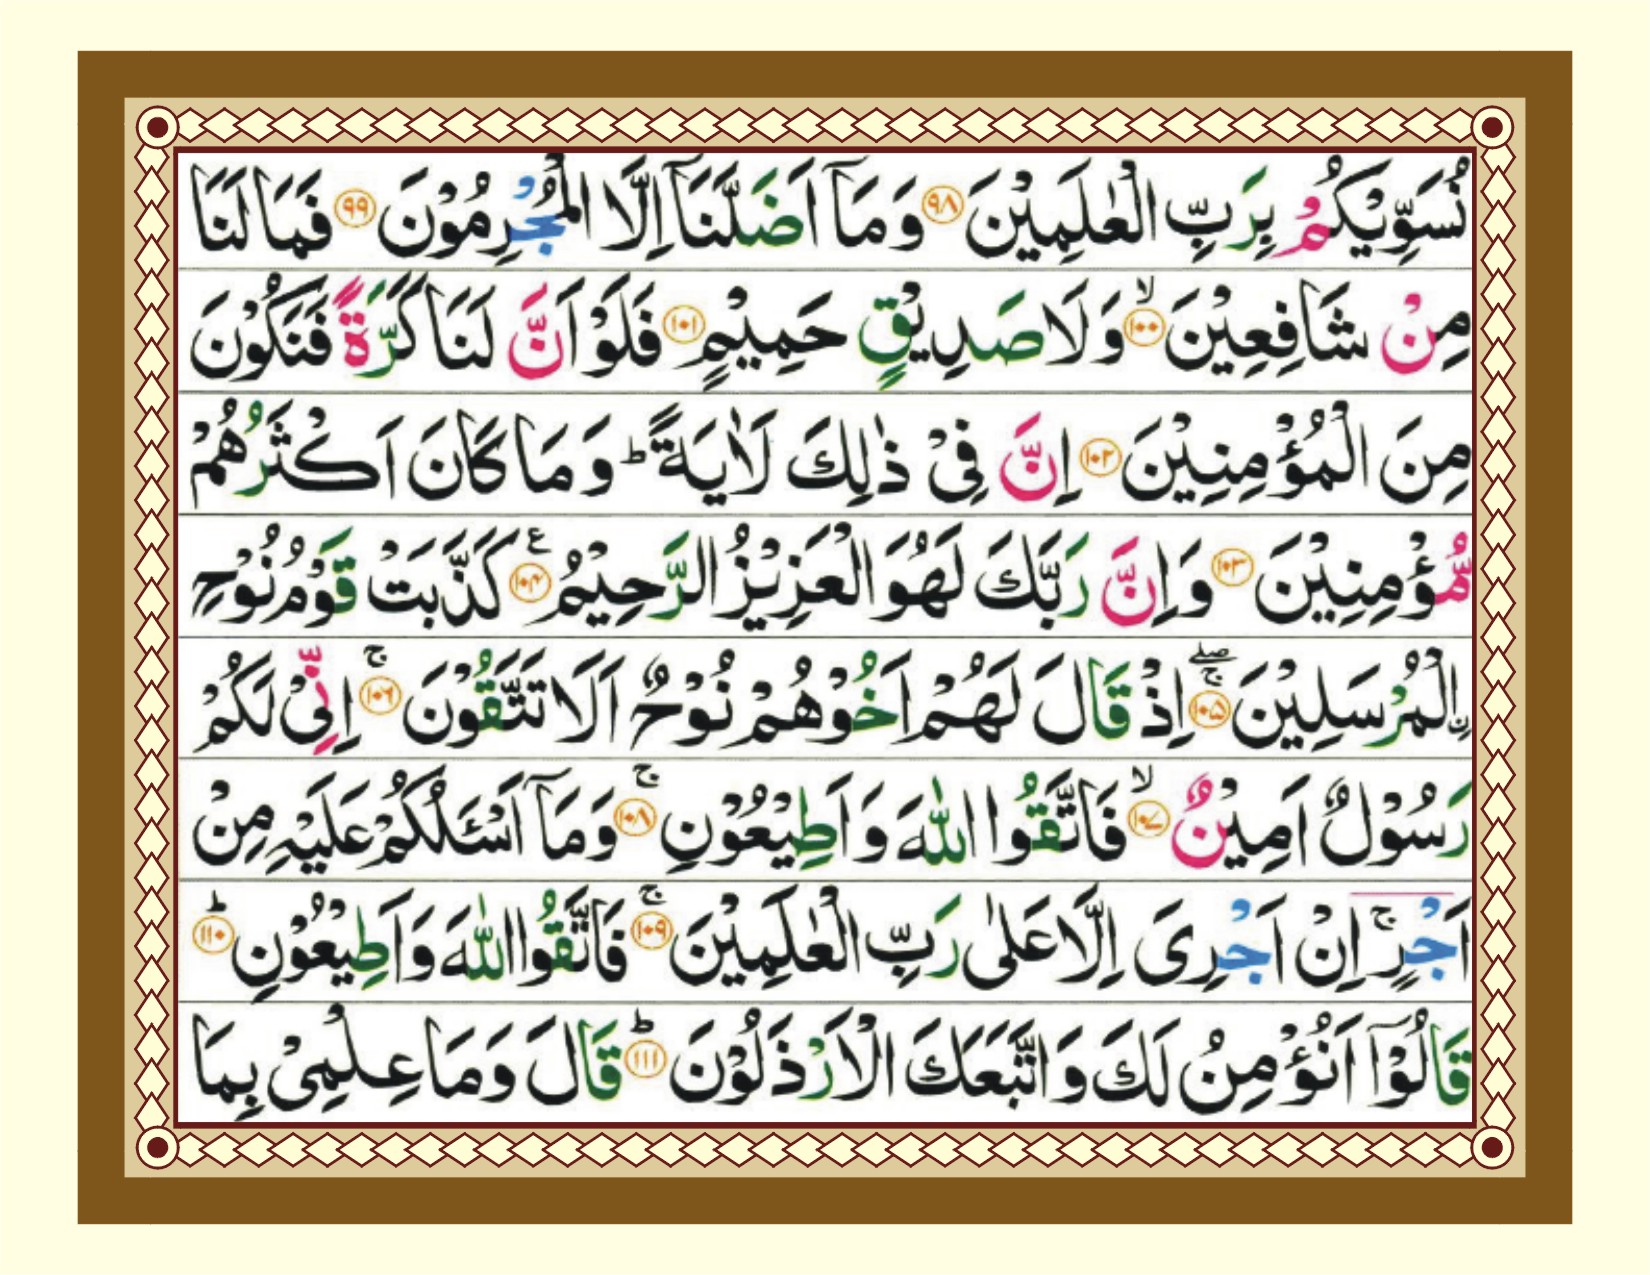 نُسَوِّيْكُمْ بِرَبِّ الْعٰلَمِيْنَ ۹۸ وَمَاۤ اَضَلَّنَاۤ اِلَّا الْمُجْرِمُوْنَ ۹۹ فَمَا لَنَا
مِنْ شَافِعِيْنَ ۱۰۰ۙ وَلَا صَدِيْقٍ حَمِيْمٍ ۱۰۱ فَلَوْ اَنَّ لَنَا كَرَّةً فَنَكُوْنَ
مِنَ الْمُؤْمِنِيْنَ ۱۰۲ اِنَّ فِيْ ذٰلِكَ لَاٰيَةً ؕ وَمَا كَانَ اَكْثَرُهُمْ
مُّؤْمِنِيْنَ ۱۰۳ وَاِنَّ رَبَّكَ لَهُوَ الْعَزِيْزُ الرَّحِيْمُ ۱۰۴ ع كَذَّبَتْ قَوْمُ نُوْحِ
ِ۟الْمُرْسَلِيْنَ ۱۰۵ ۖۚ اِذْ قَالَ لَهُمْ اَخُوْهُمْ نُوْحٌ اَلَا تَتَّقُوْنَ ۱۰۶ۚ اِنِّيْ لَكُمْ
رَسُوْلٌ اَمِيْنٌ ۱۰۷ۙ فَاتَّقُوا اللّٰهَ وَاَطِيْعُوْنِ ۱۰۸ۚ وَمَاۤ اَسْـَٔلُكُمْ عَلَيْهِ مِنْ
اَجْرٍ ۚ اِنْ اَجْرِيَ اِلَّا عَلٰى رَبِّ الْعٰلَمِيْنَ ۱۰۹ۚ فَاتَّقُوا اللّٰهَ وَاَطِيْعُوْنِ ۱۱۰ؕ
قَالُوْۤا اَنُؤْمِنُ لَكَ وَاتَّبَعَكَ الْاَرْذَلُوْنَ ۱۱۱ؕ قَالَ وَمَا عِلْمِيْ بِمَا